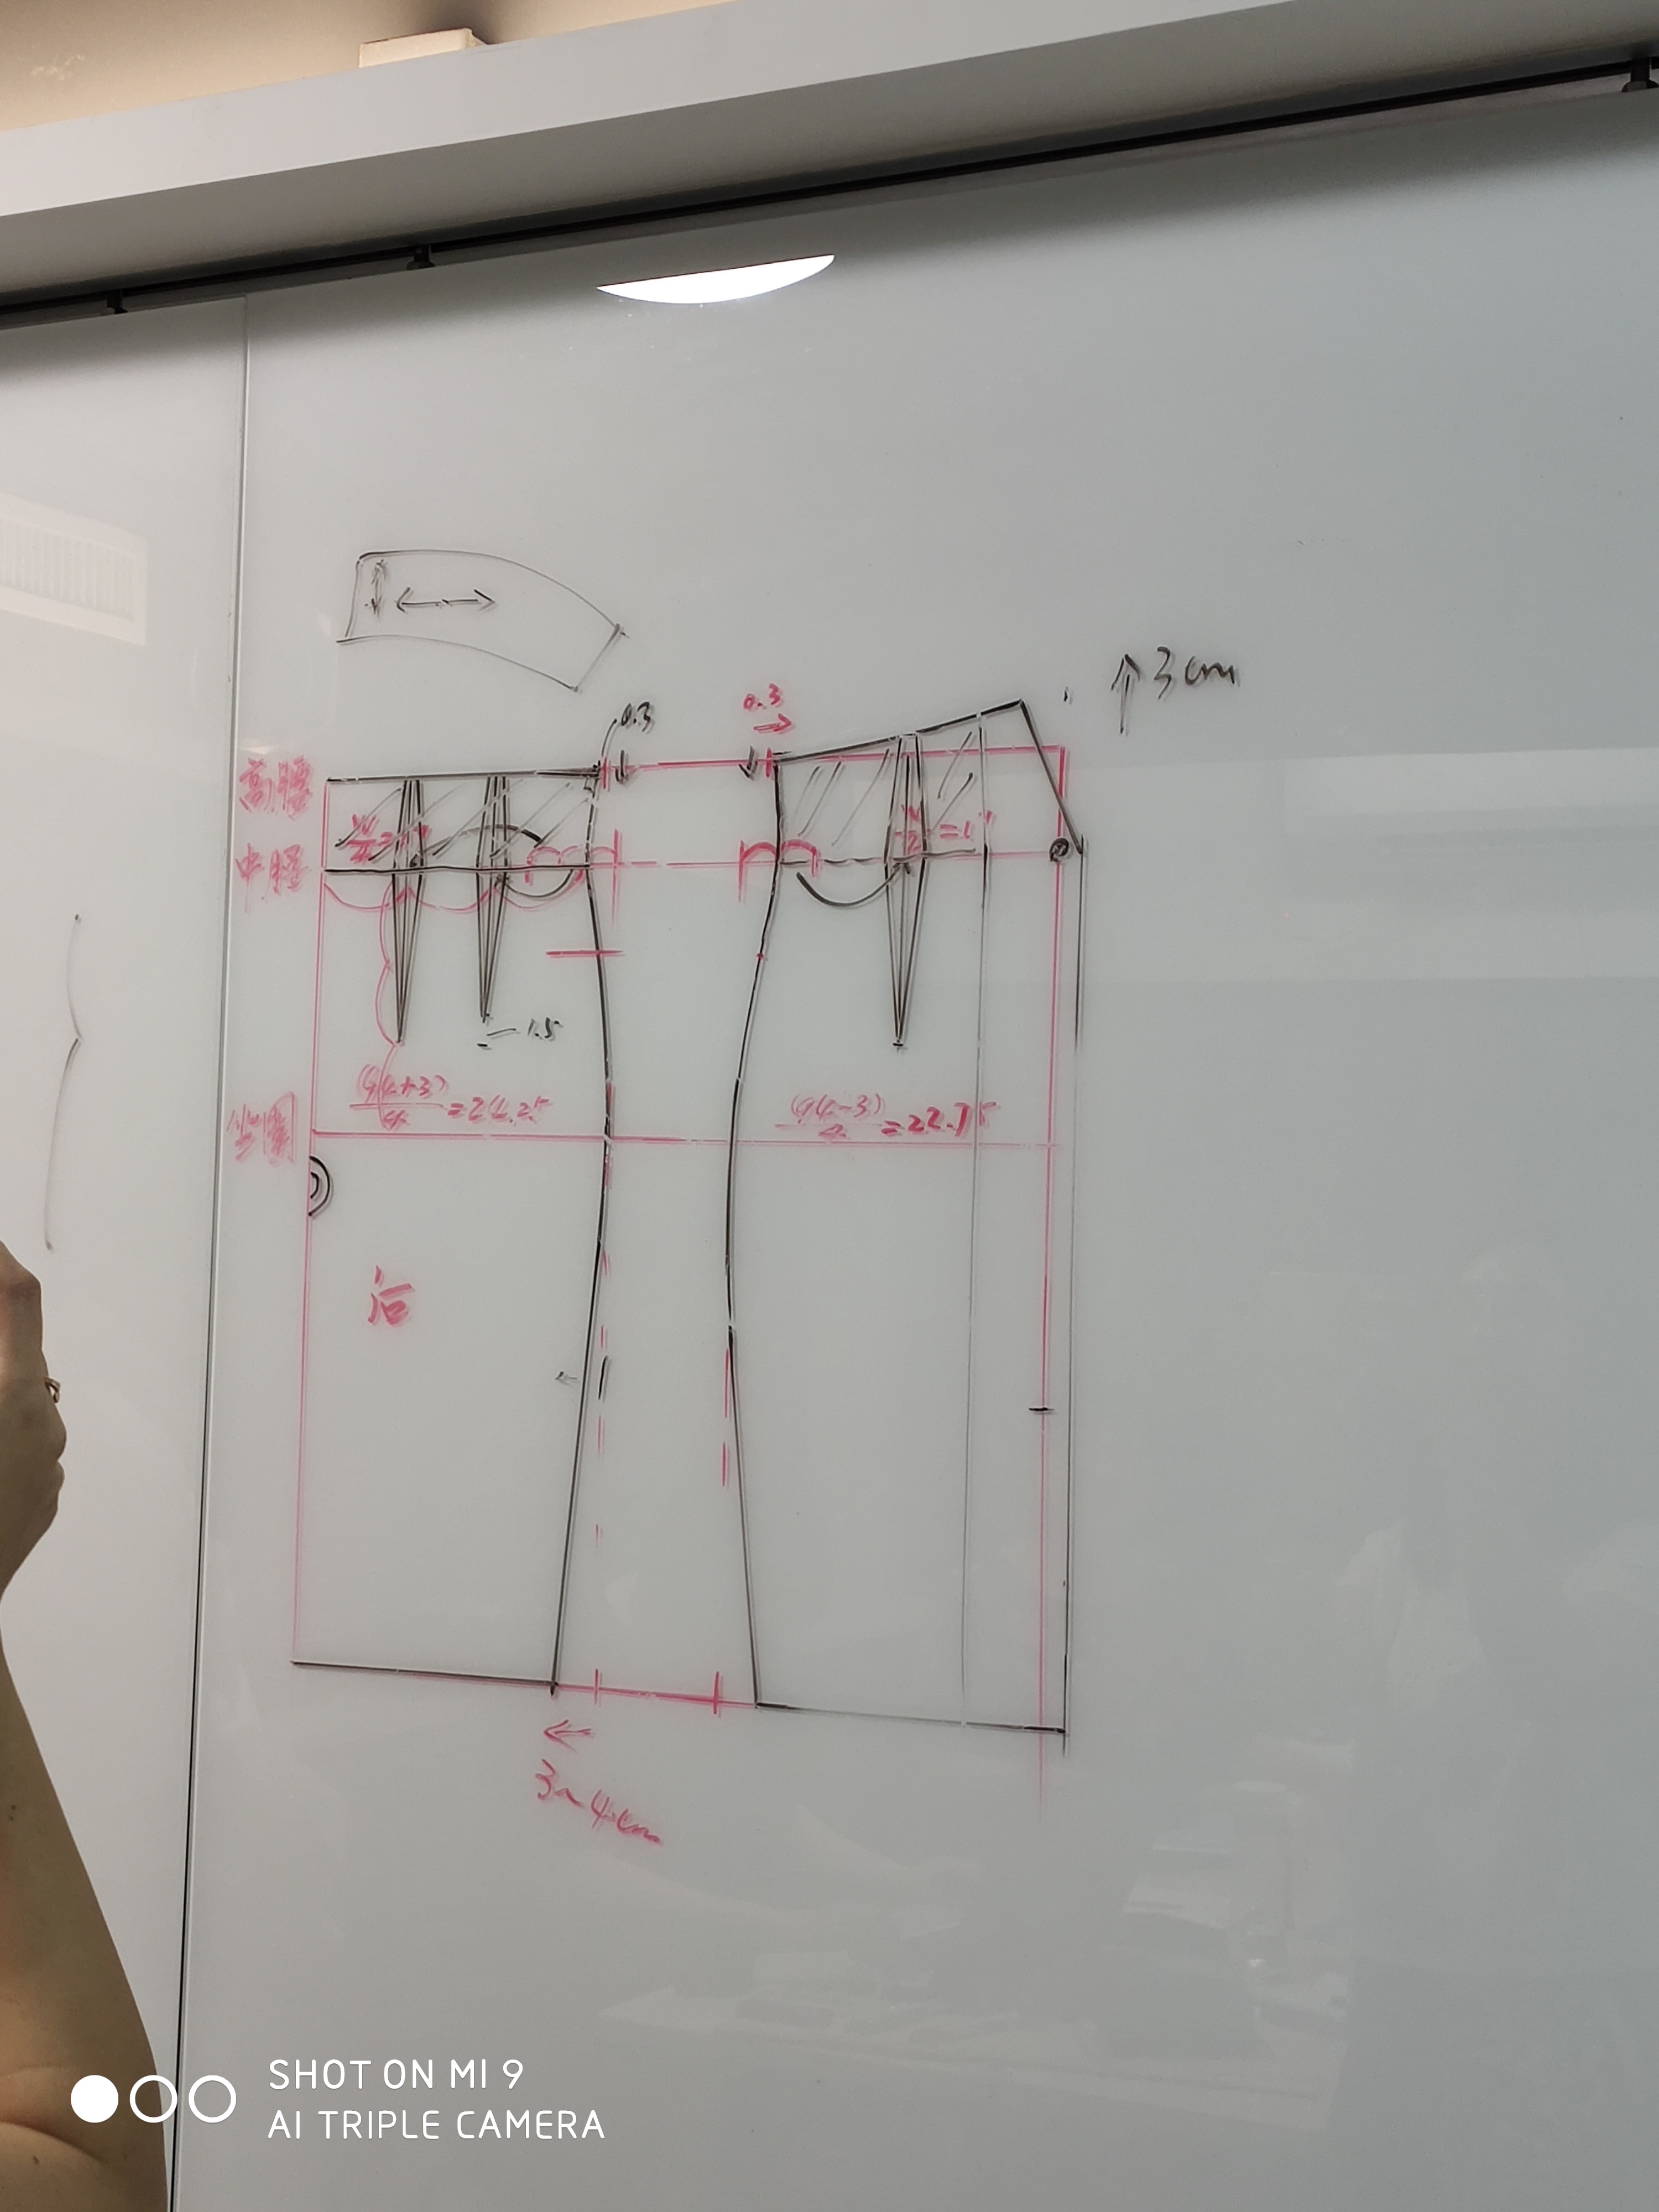 ↑3cm
0.3
0.3
高腰
中腰
1.5
坐围
(94+3)/4=24.25
(94-3)/4=22.75
后
3~4cm
SHOT ON MI 9
AI TRIPLE CAMERA